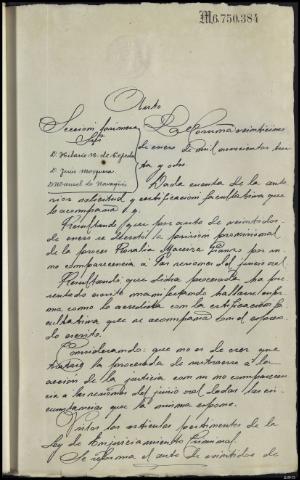 M6.750.384
Auto
Seccion primera
Sres
D. Hilario N. de Cepeda
D. Jesús Mosquera
D. Manuel de
La Coruña veinticinco
de enero de mil novecientos trein
ta y dos.
Dada cuenta de la ante
rior solicitud y certificación facultativa que
le acompaña y.
Resultando: que por auto de veintidos
de enero se decretó la prisión provisional
de la procesada Rosalia por su
no comparecencia a las sesiones del juicio oral
Resultando: que dicha procesada ha pre
sentado escrito manifestando hallarse enfer
ma como lo acredita con la certificación fa
cultativa que se acompaña con el expresa
do escrito.
Considerando: que no es de creer que
tratara la procesada de sustraerse a la
acción de la justicia con su no comparecen
cia a las sesiones del juicio oral dadas las cir
cunstancias que la misma expone.
Vistos los articulos pertinentes de la
Ley de Enjuiciamiento Criminal
Se reforma el auto de veintidos de